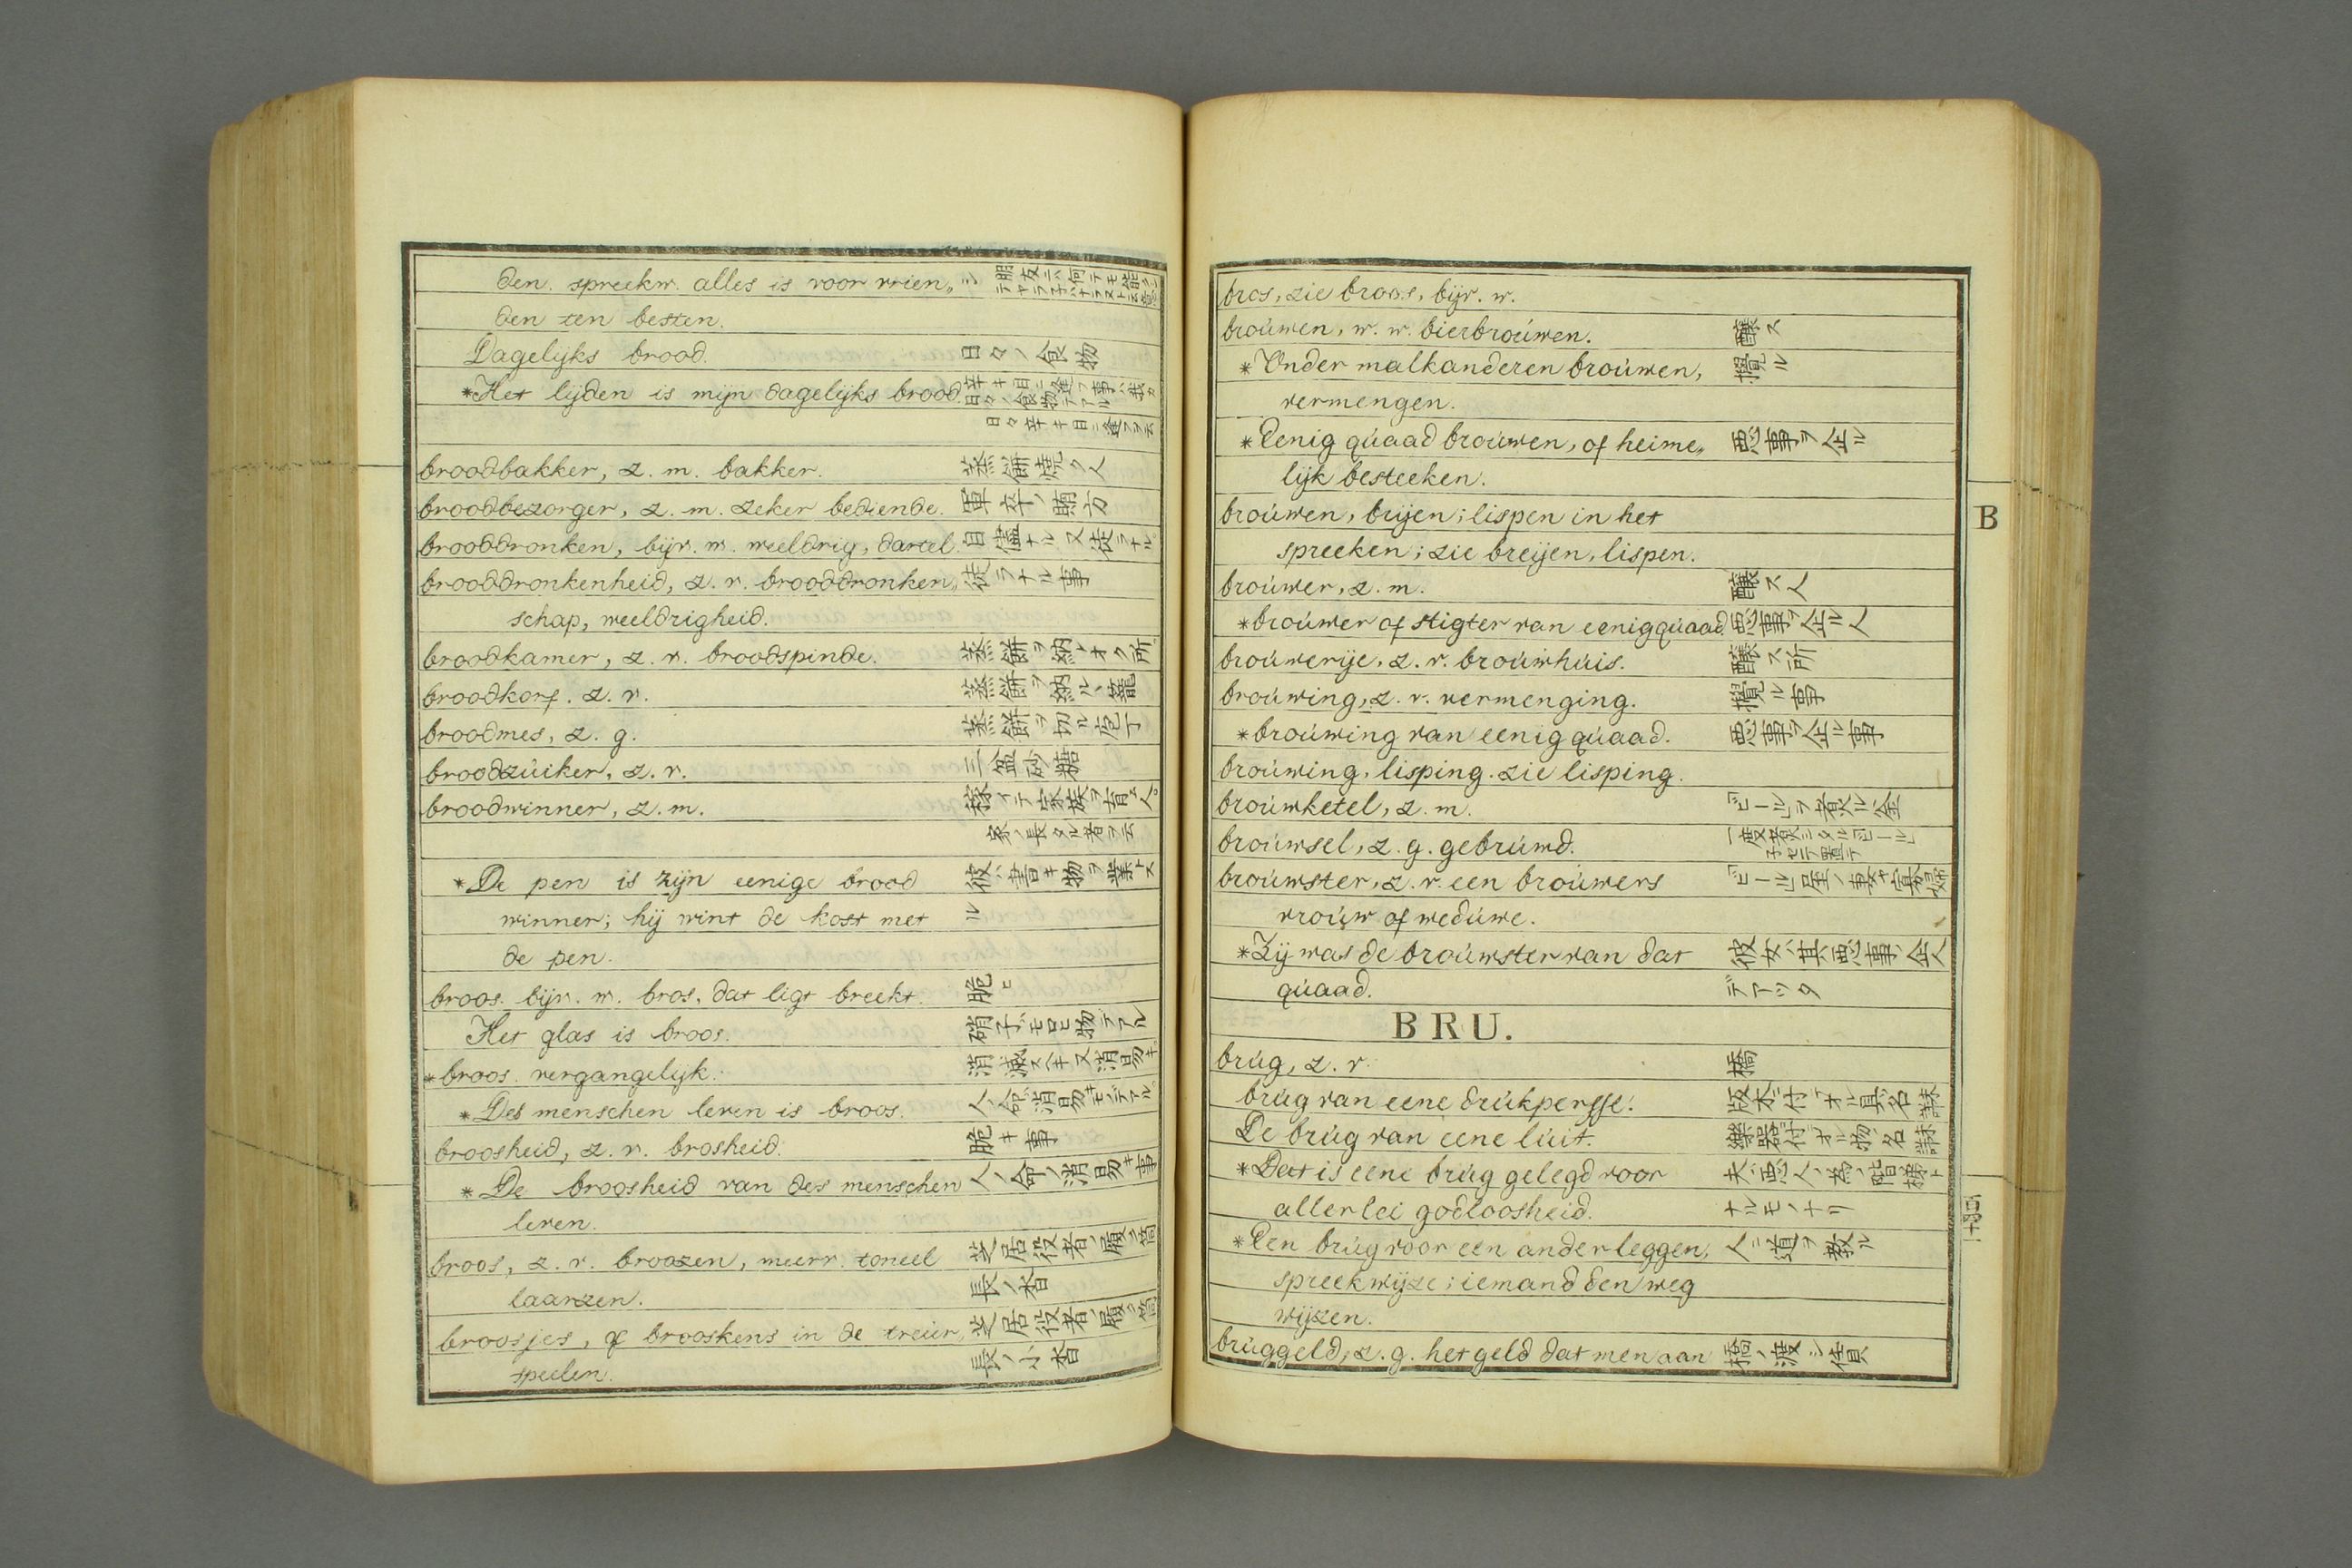 den. spreekw. alles is voor vrien„
den ten besten.
Dagelijks brood. 日々ノ食物
*Het lijden is mijn dagelijks brood. 辛キ目ニ逢フ事ハ我カ
日々ノ食物テアル
日々辛キ目ニ逢フヲ云
broodbakker, z. m. bakker. 蒸餅焼ク人
broodbezorger, z. m. zeker bediende. 軍卒ノ賄方
brooddronken, bijv. w. weeldrig, dartel. 自儘ナル又徒ラナル
brooddronkenheid, z. v. brooddronken„ 徒ラナル事
schap, weeldrigheid.
broodkamer, z. v. broodspinde. 蒸餅ヲ納レオク所
broodkorf. z. v. 蒸餅ヲ納ルヽ籠
broodmes, z. g. 蒸餅ヲ切ル庖丁
broodzúiker, z. v. 三盆砂糖
broodwinner, z. m. 稼イテ家族ヲ育ム人
家ノ長タル者ヲ云
*De pen is zijn eenige brood 彼ハ書キ物ヲ業トス
winner; hij wint de kost met ル
de pen.
broos. bijv. w. bros, dat ligt breekt. 脆ヒ
Het glas is broos. 硝子ハモロヒ物デアル
*broos. vergangelijk. 消滅スヘキ又消易キ
*Des menschen leven is broos. 人ノ命ハ消易キモノデアル
broosheid, z. v. brosheid. 脆キ事
*De broosheid van des menschen 人ノ命ノ消易キ事
leven.
broos, z. v. broozen, meerv. toneel 芝居役者ノ履ク筒
laarzen. 長ノ沓
broosjes, of brooskens in de treúr„ 芝居役者ノ履ク筒
speelen. 長ノ小沓
bros, zie broos, bijv. w.
broúwen, w. w. bierbroúwen. 醸ス
*Onder malkanderen broúwen, 攪ル
vermengen.
*Eenig qúaad broúwen, of heime„ 悪事ヲ企ル
lijk besteeken.
broúwen, brijen; lispen in het
spreeken; zie breijen, lispen.
broúwer, z. m. 醸ス人
*broúwer of stigter van eenig qúaad. 悪事ヲ企ル人
broúwerije, z. v. broúwhúis. 醸ス所
broúwing, z. v. vermenging. 攪ル事
*broúwing van eenig qúaad. 悪事ヲ企ル事
broúwing, lisping. zie lisping.
broúwketel, z. m. ビールヲ煮ル釜
broúwsel, z. g. gebrúwd. 一度煮シタルビール
broúwster, z. v. een broúwers ビール屋ノ妻又寡婦
vroúw of wedúwe.
*Zij was de broúwster van dat 彼女ハ其悪事ノ企人
qúaad. デアツタ
BRU.
brúg, z. v. 橋
brúg van eene drúkpersse. 版木ニ付テオル具ノ名
De brúg van eene lúit. 樂器ニ付テオル物ノ名
*Dat is eene brúg gelegd voor 夫ハ悪人ノ為ノ階梯ト
allerlei godloosheid. ナルモノナリ
*Een brúg voor een ander leggen, 人ニ道ヲ教ル
spreekwijze; iemand den weg
wijzen.
brúggeld, z. g. het geld dat men aan 橋ノ渡シ賃
B